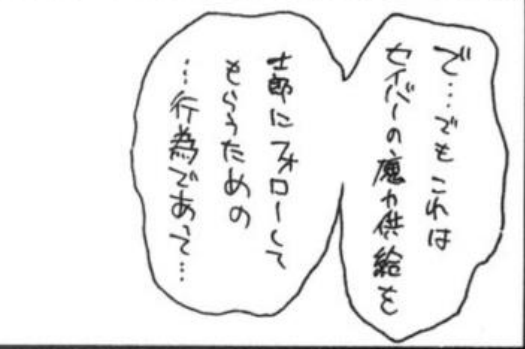 で…でもこれは
セイバーの魔力供給を
士郎にフォローして
もらうための
…行為であって…